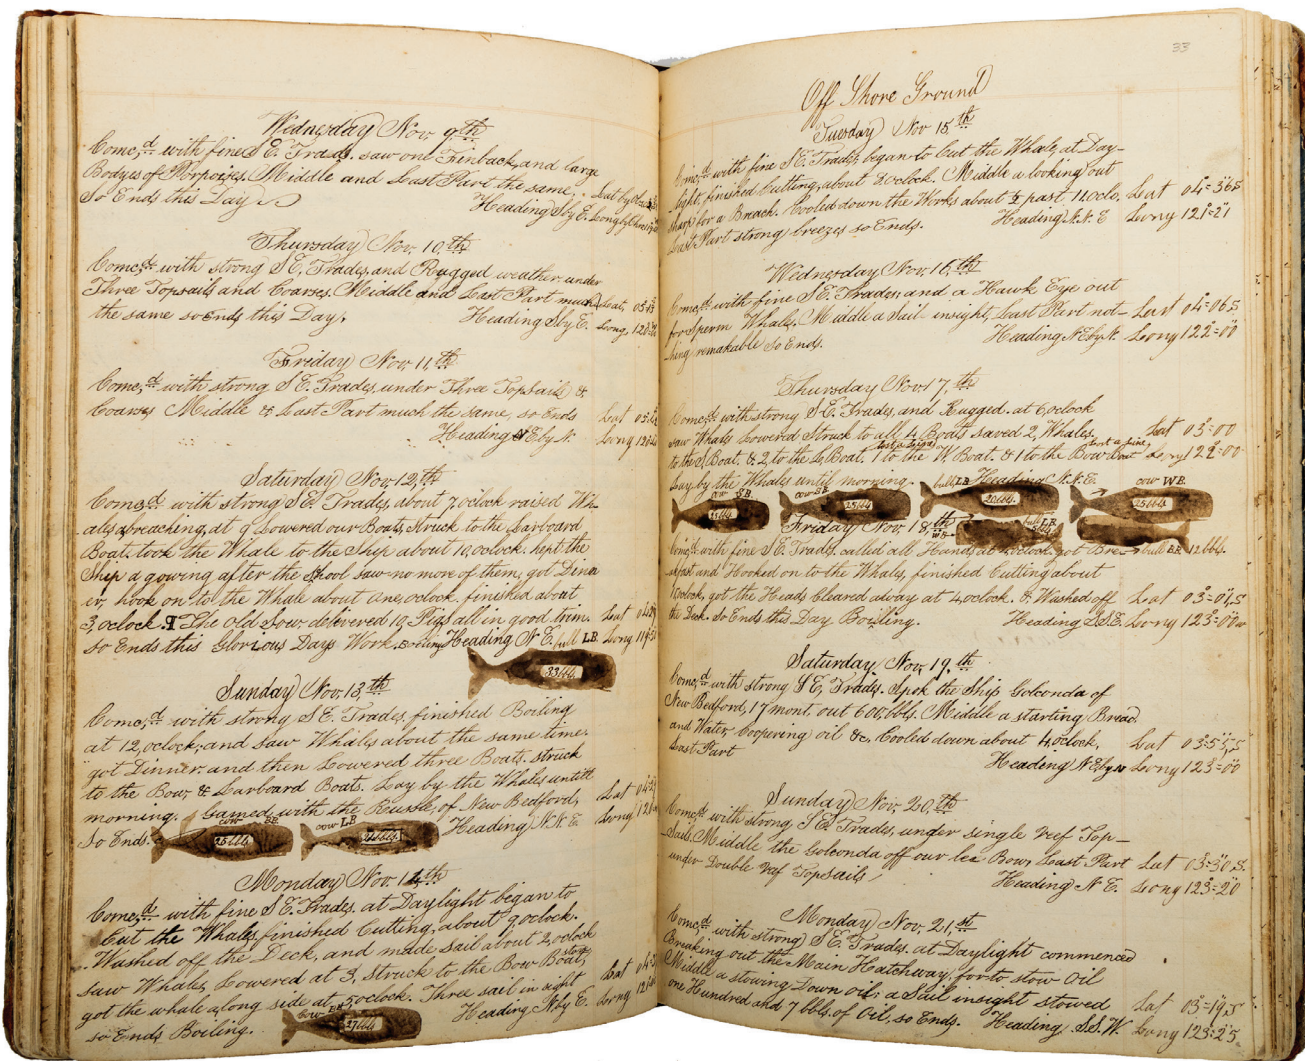 Wednesday Nov 9th
Come,d with fine S E. Trads. saw one Finback, and large
Bodyes of Porpoises. Middle and Least Part the same.
So Ends this Day
Heading S by E.
Thursday Nov, 10th
Come,d with strong S E, Trades, and Rugged weather under
Three Topsails and Coarses. Middle and Least Part much Lat,
the same so Ends this Day. Heading S by E. Long,
Friday Nov, 11th
Come,d with strong S E. Trades, under Three TopSails &
Coarses Middle & Least Part much the same, so Ends Lat
Heading E by N. Long
Saturday Nov, 12th
Comed with strong S E. Trades, about 7, oclock raised Wh-
ales, abreaching, at 9, Lowered our Boats, Struck to the Larboard
Boat, took the Whale to the Ship about 10, oclock. kept the
Ship a gowing after the Shool saw no more of them, got Dinn
er, hook on to the Whale about one, oclock. finished about
3, oclock. The old Sow delivered 10, Pigs all in good trim. Lat
so Ends this Glorious Days Work. Boiling Heading N E. Long
bull LB.
33 bbl.
Sunday Nov, 13,th
Come,d with strong S E. Trades, finished Boiling
at 12, oclock, and saw Whales about the same time.
got Dinner. and then Lowered three Boats. struck
to the Bow, & Larboard Boats. Lay by the Whales untill Lat
morning. Gamed, with the of New Bedford, Long
So Ends. Heading N. N. E.
cow BB.
25 bbl.
cow LB
Monday Nov. 14th
Come,d with fine S E. Trades. at Daylight began to
Cut the Whales, finished Cutting, about 9 oclock.
Washed off the Deck, and made sail about 2, oclock
saw Whales, Lowered at 3, struck to the Bow Boat, Lat
got the whale along side at 5, oclock. Three sail in sight Long
so Ends Boiling. Heading N by E.
cow BB
27 bbl
33
Off Shore Ground
Tuesday Nov 15,th
Come,d with fine S E. Trades, began to Cut the Whale, at Day-
light, finished Cutting, about 8, oclock. Middle a looking out
sharp for a Breach. Cooled down the Works about ½ past 11, oclo, Lat 04=36,S
Least Part strong breezes so Ends. Heading N. N. E Long 121=21
Wednesday Nov, 16,th
Come,d with fine S E. Trades, and a Hawk Eye out
for Sperm Whales, Middle a Sail insight, Least Part not- Lat 04=06,S
hing remakable So Ends. Heading N E by N. Long 122=00
Thursday Nov, 17,th
Come,d with strong S E. Trades, and Rugged. at 6, oclock
saw Whales Lowered Struck to all 4 Boats saved 2, Whales, Lat 03=00
to the S, Boat. & 2, to the L, Boat. 1 to the W. Boat. & 1 to the Bow Boat Long 122=00
lost a line
Lay by the Whales until morning. Heading N. N. E.
cow SB.
cow SB
25 bbl
bull LB
20 bbl.
cow WB.
25 bbl
bull LB.
bull BB. 12 bbls.
Friday Nov, 18,th
Come,d with fine S E. Trades. called all Hands, at 4, oclock. got Bre-
akfast and Hooked on to the Whales, finished Cutting about
1, oclock, got the Heads Cleared away at 4, oclock. & Washed off Lat 03=01,S
the Deck. so Ends this Day Boiling. Heading S S E. Long 123=00
Saturday Nov, 19,th
Come,d with strong S E, Trades. Spok the Ship Golconda of
New Bedford, 17 mont, out 600, bbls. Middle a starting Bread
and Water, Coopering oil &c. Cooled down about 4, oclock, Lat 03=55,S
Least Part Heading N E by Long 123=00
Sunday Nov, 20,th
Come,d with strong, S E. Trades, under single reef Top-
Sails. Middle the Golconda off our lee Bow, Least Part Lat 03=30,S.
under Double reef TopSails, Heading N E. Long 123=20
Monday Nov, 21,st
Come,d with strong S E. Trades. at Daylight commenced
Breaking out the Main Hatchway, for to stow Oil
Middle a stowing Down oil; a Sail insight stowed Lat 03=19,S
one Hundred and 7 bbls. of Oil, so Ends. Heading S.S.W. Long 123=25